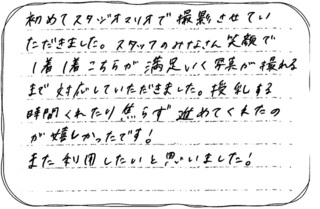 初めてスタジオマリオで撮影させてい
ただきました。スタッフのみなさん笑顔で
1着1着こちらが満足いく写真が撮れる
まで対応していただきました。授乳する
時間くれたり焦らず進めてくれたの
が嬉しかったです!
また利用したいと思いました!